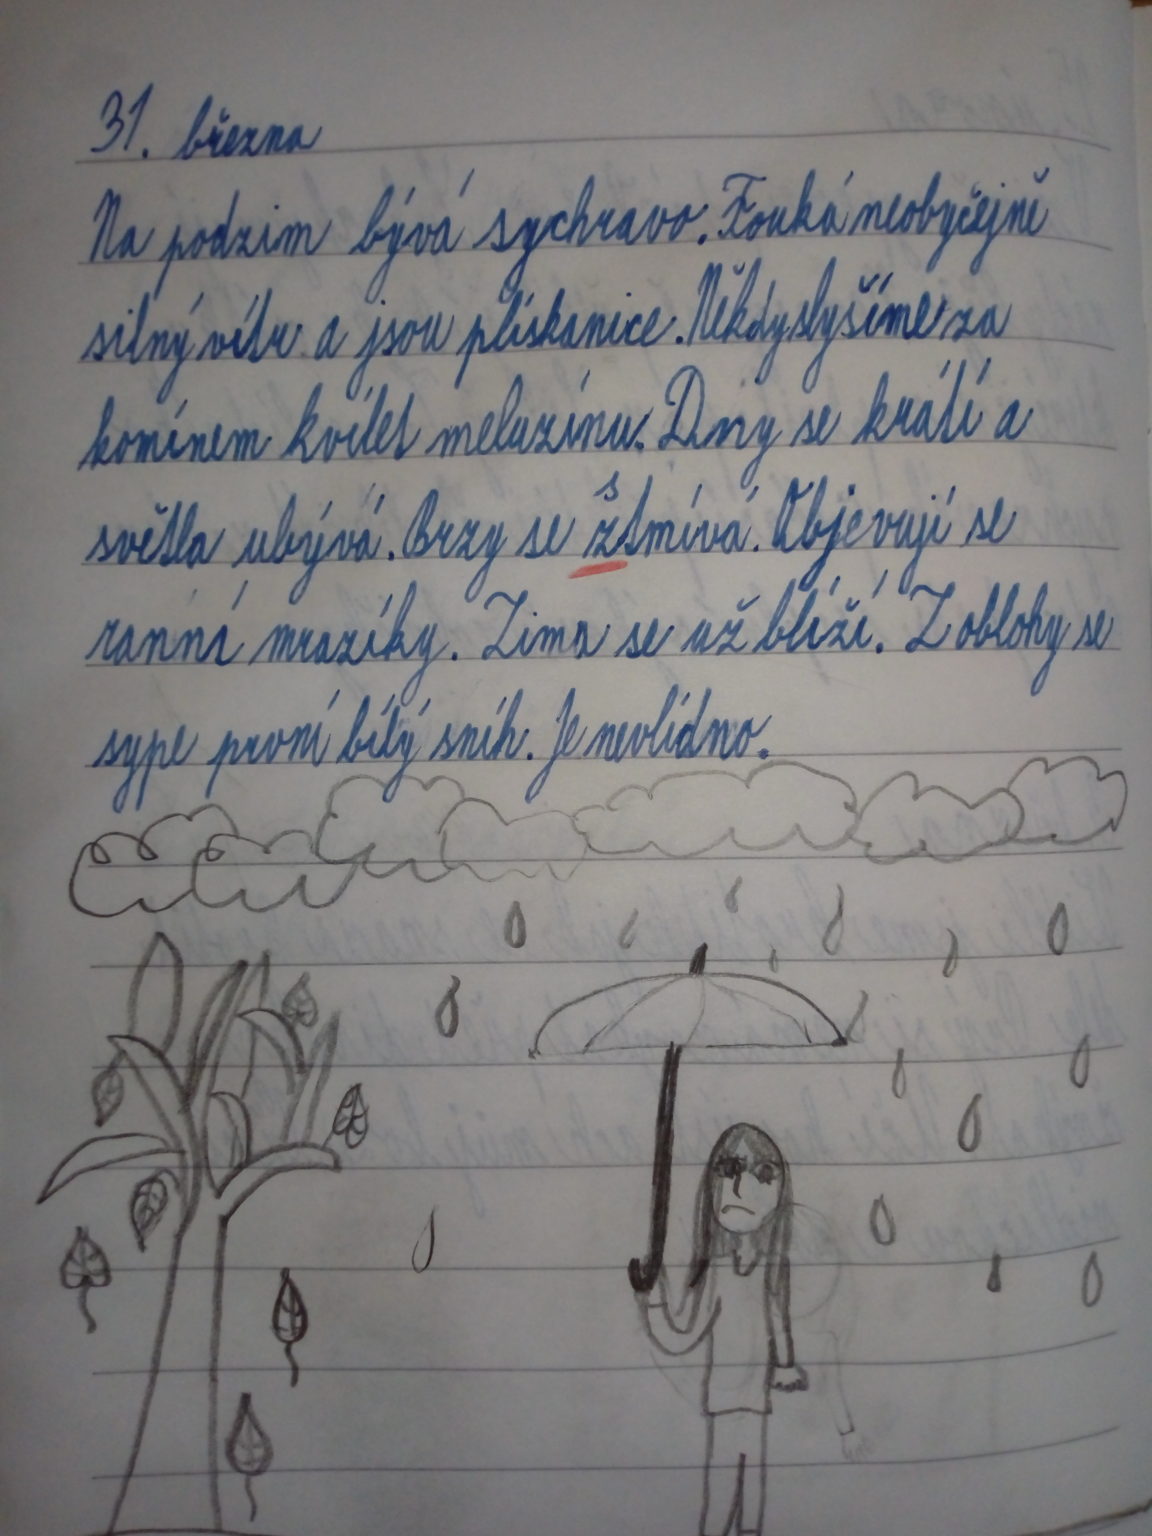 31. března
Na podzim bývá sychravo. Fouká neobyčejně
silný vítr a jsou plískanice. Někdy slyšíme za
komínem kvílet meluzínu. Dny se krátí a
světla ubývá. Brzy se
s
ztmívá. Objevují se
ranní mrazíky. Zima se už blíží. Z oblohy se
sype první bílý sníh. Je nevlídno.